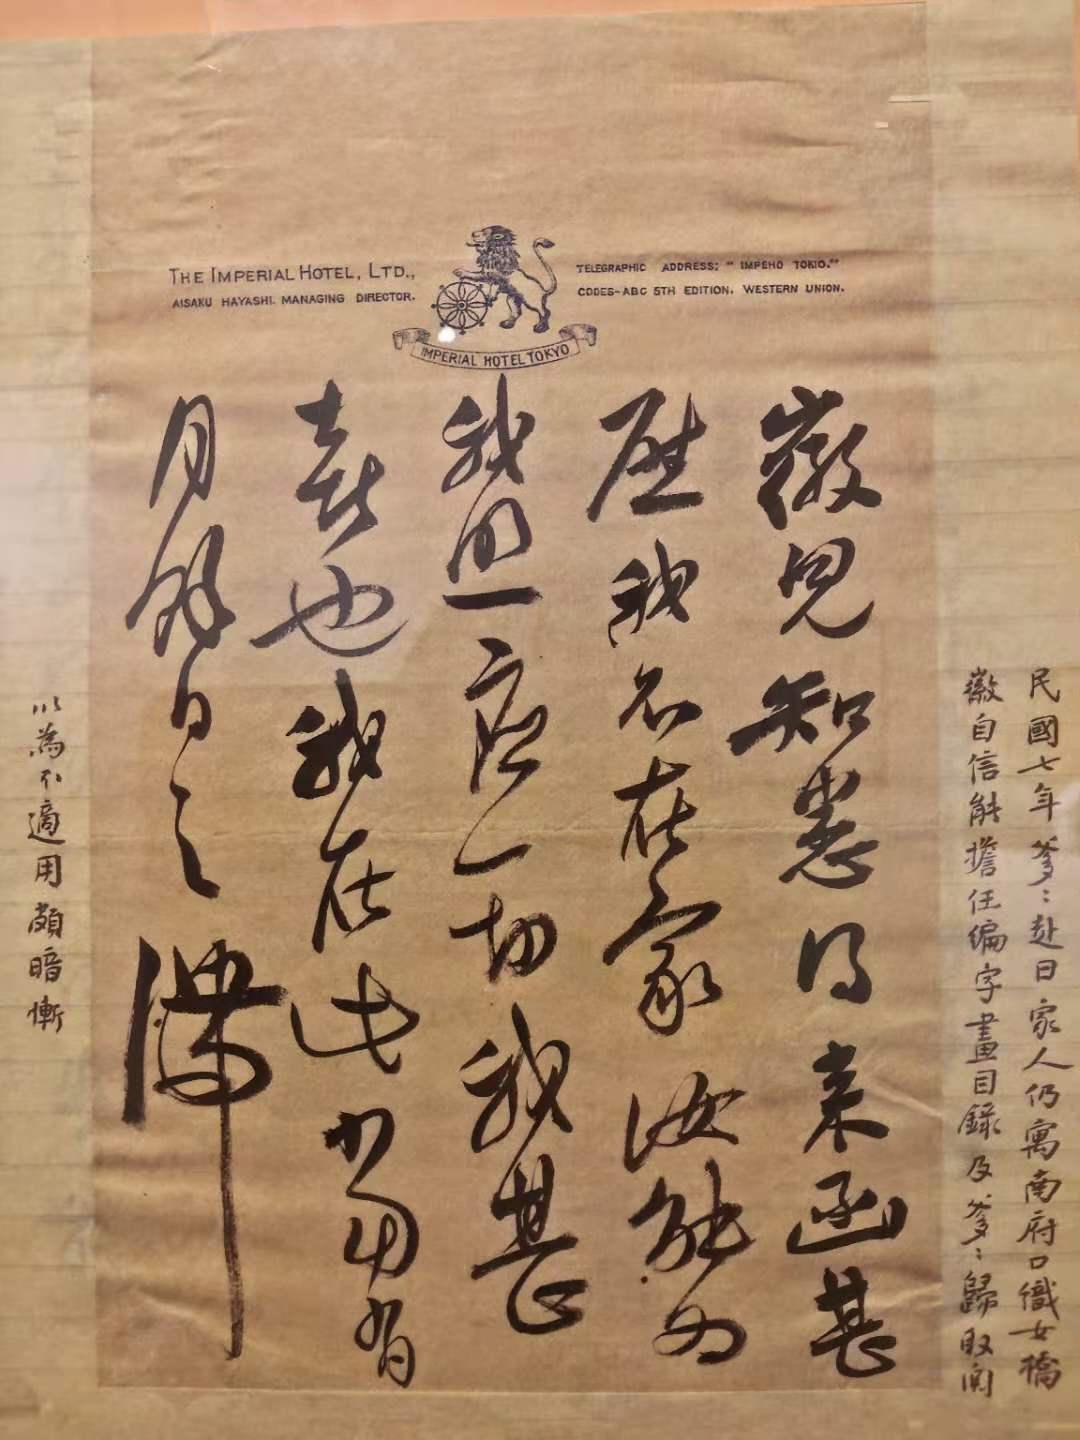 THE IMPERIAL HOTEL, LTD.,
AISAKU HAYASHI. MANAGING DIRECTOR.
TELEGRAPHIC ADDRESS: "IMPEHO TOKIO."
CODES-ABC 5TH EDITION. WESTERN UNION.
IMPERIAL HOTEL TOKYO
民國七年爹〻赴日家人仍寓南府口織女橋
徽自信能擔任編字畫目錄及爹〻歸取閱
徽兒知悉得来函甚
慰我不在家汝能為
我照應一切我甚
喜也我在此當有
月餘日之滯
以為不適用頗暗慚